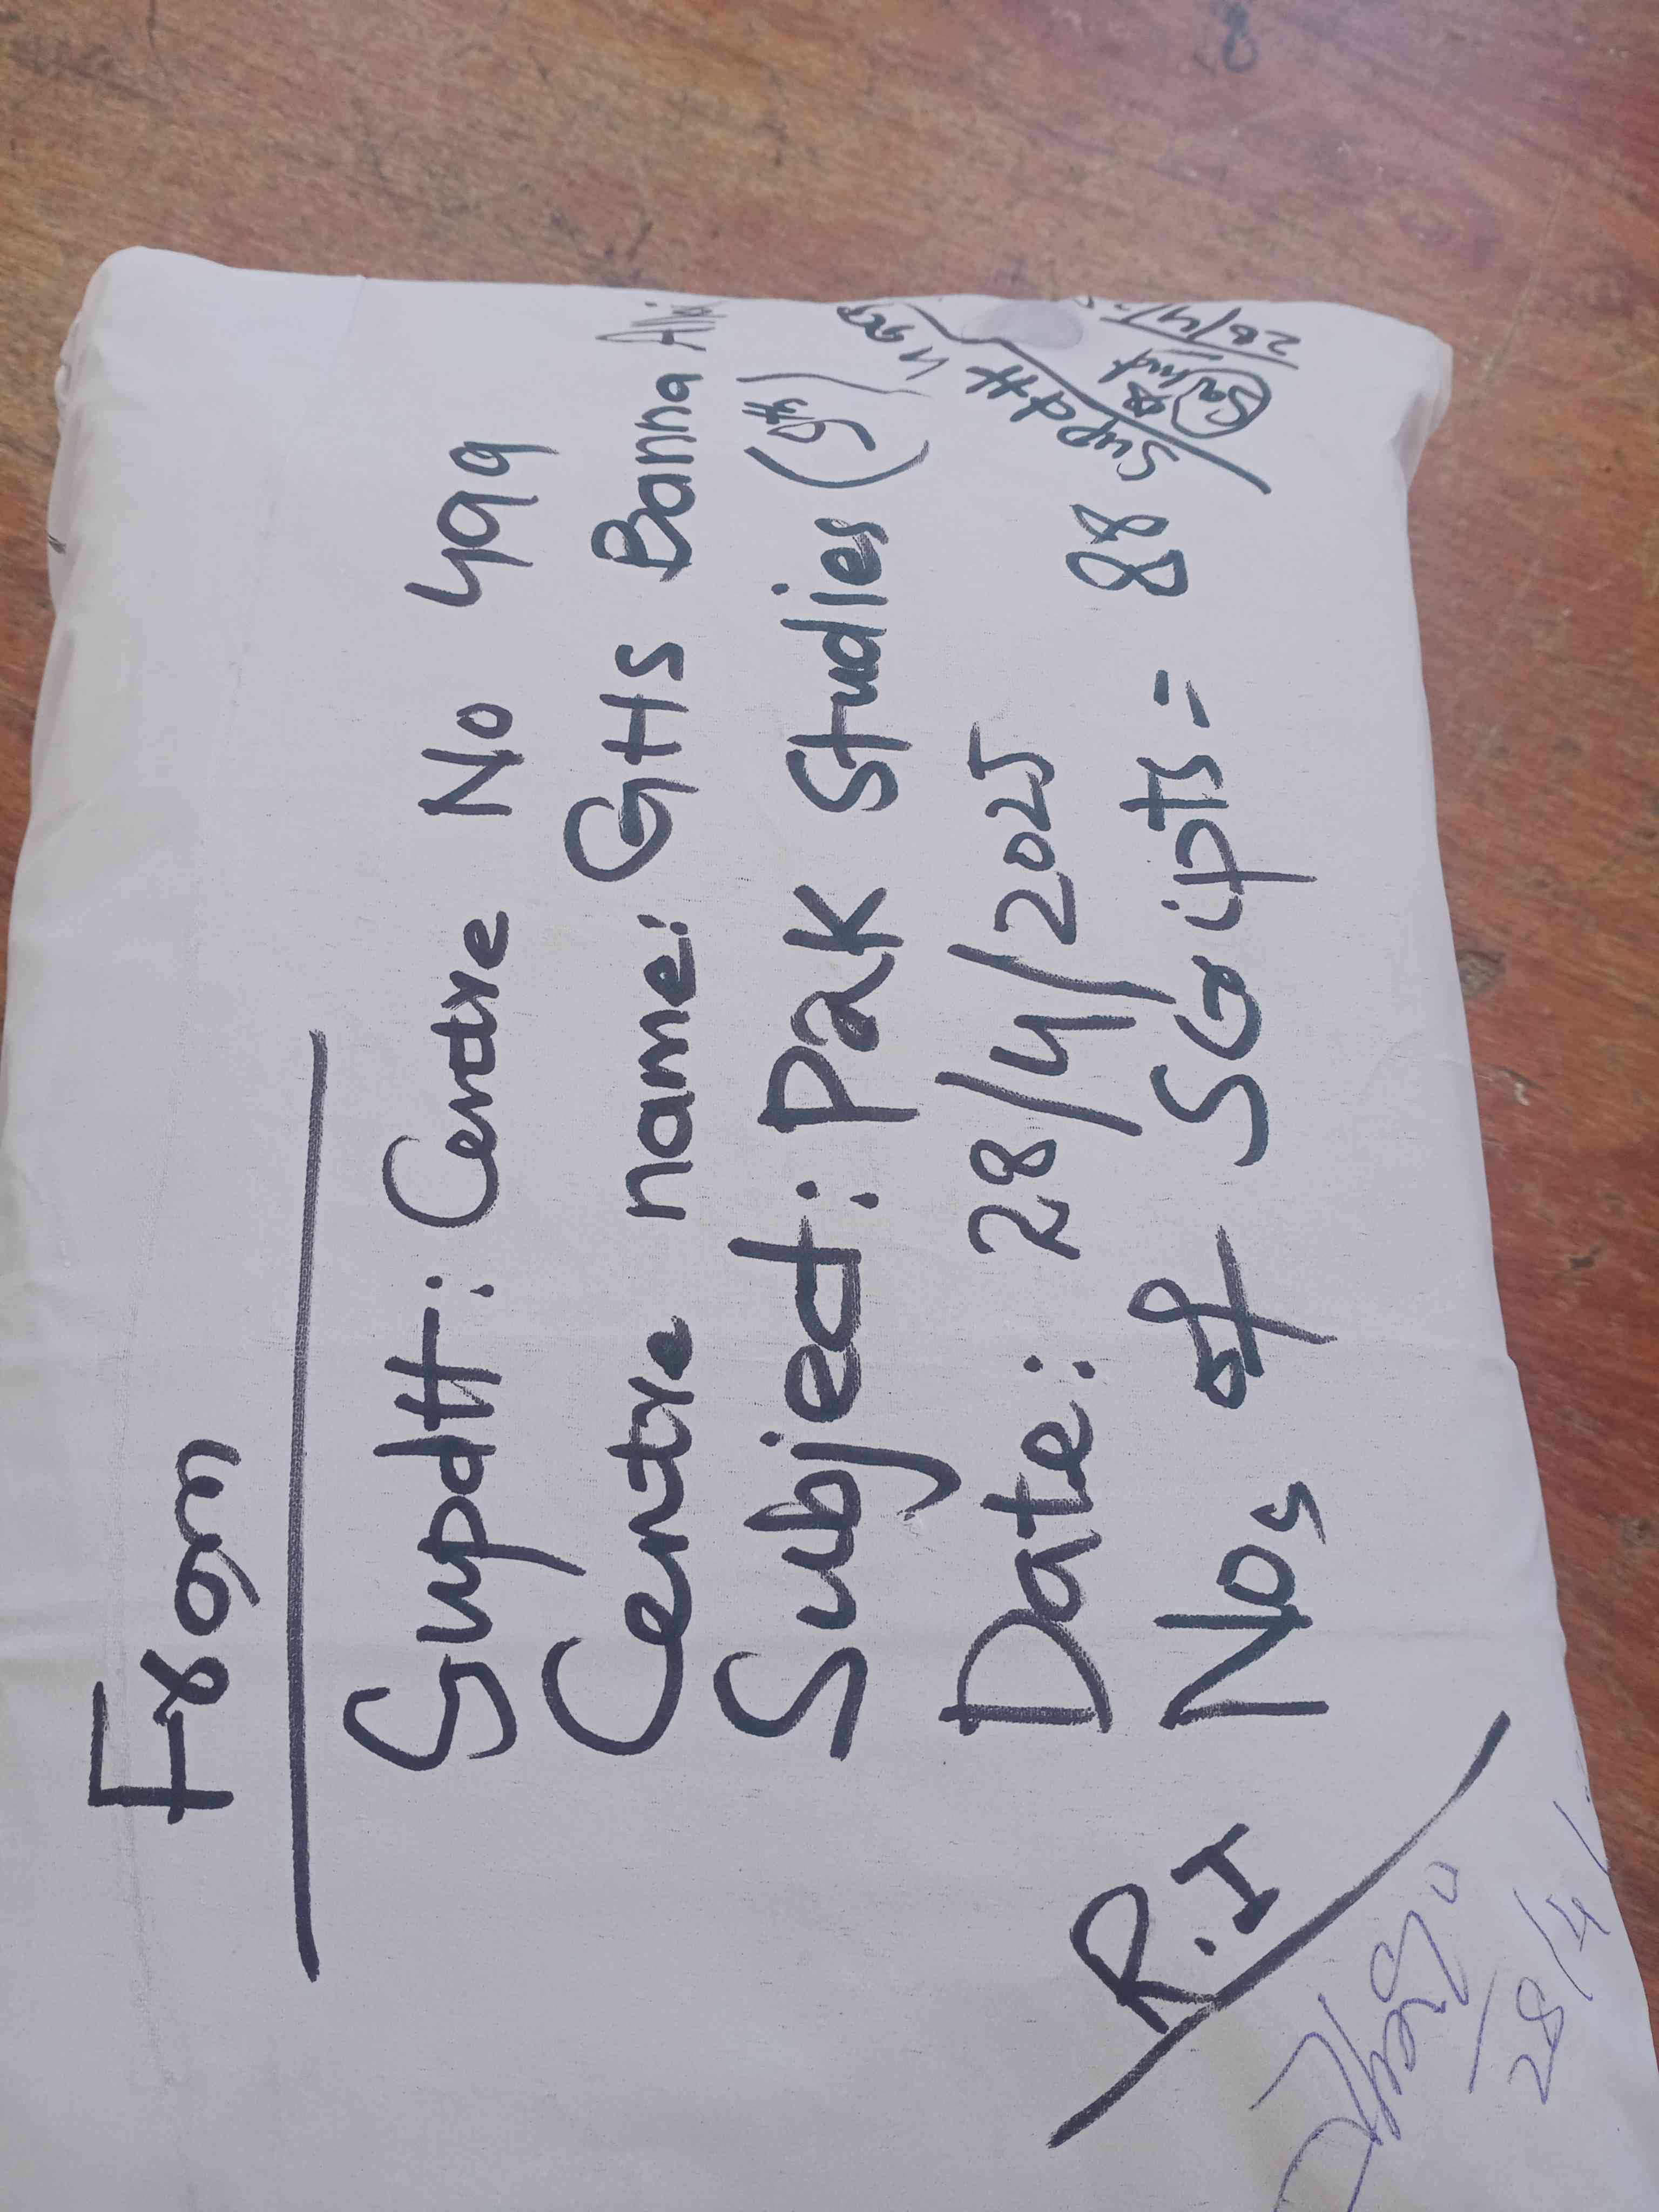 From
Supdtt: Centre No 499
Centre name: GHS Banna Alai
Subject: Pak Studies (9th)
Date: 28/4/2025
Nos of Scripts = 88
R.I
Supdtt
28/4